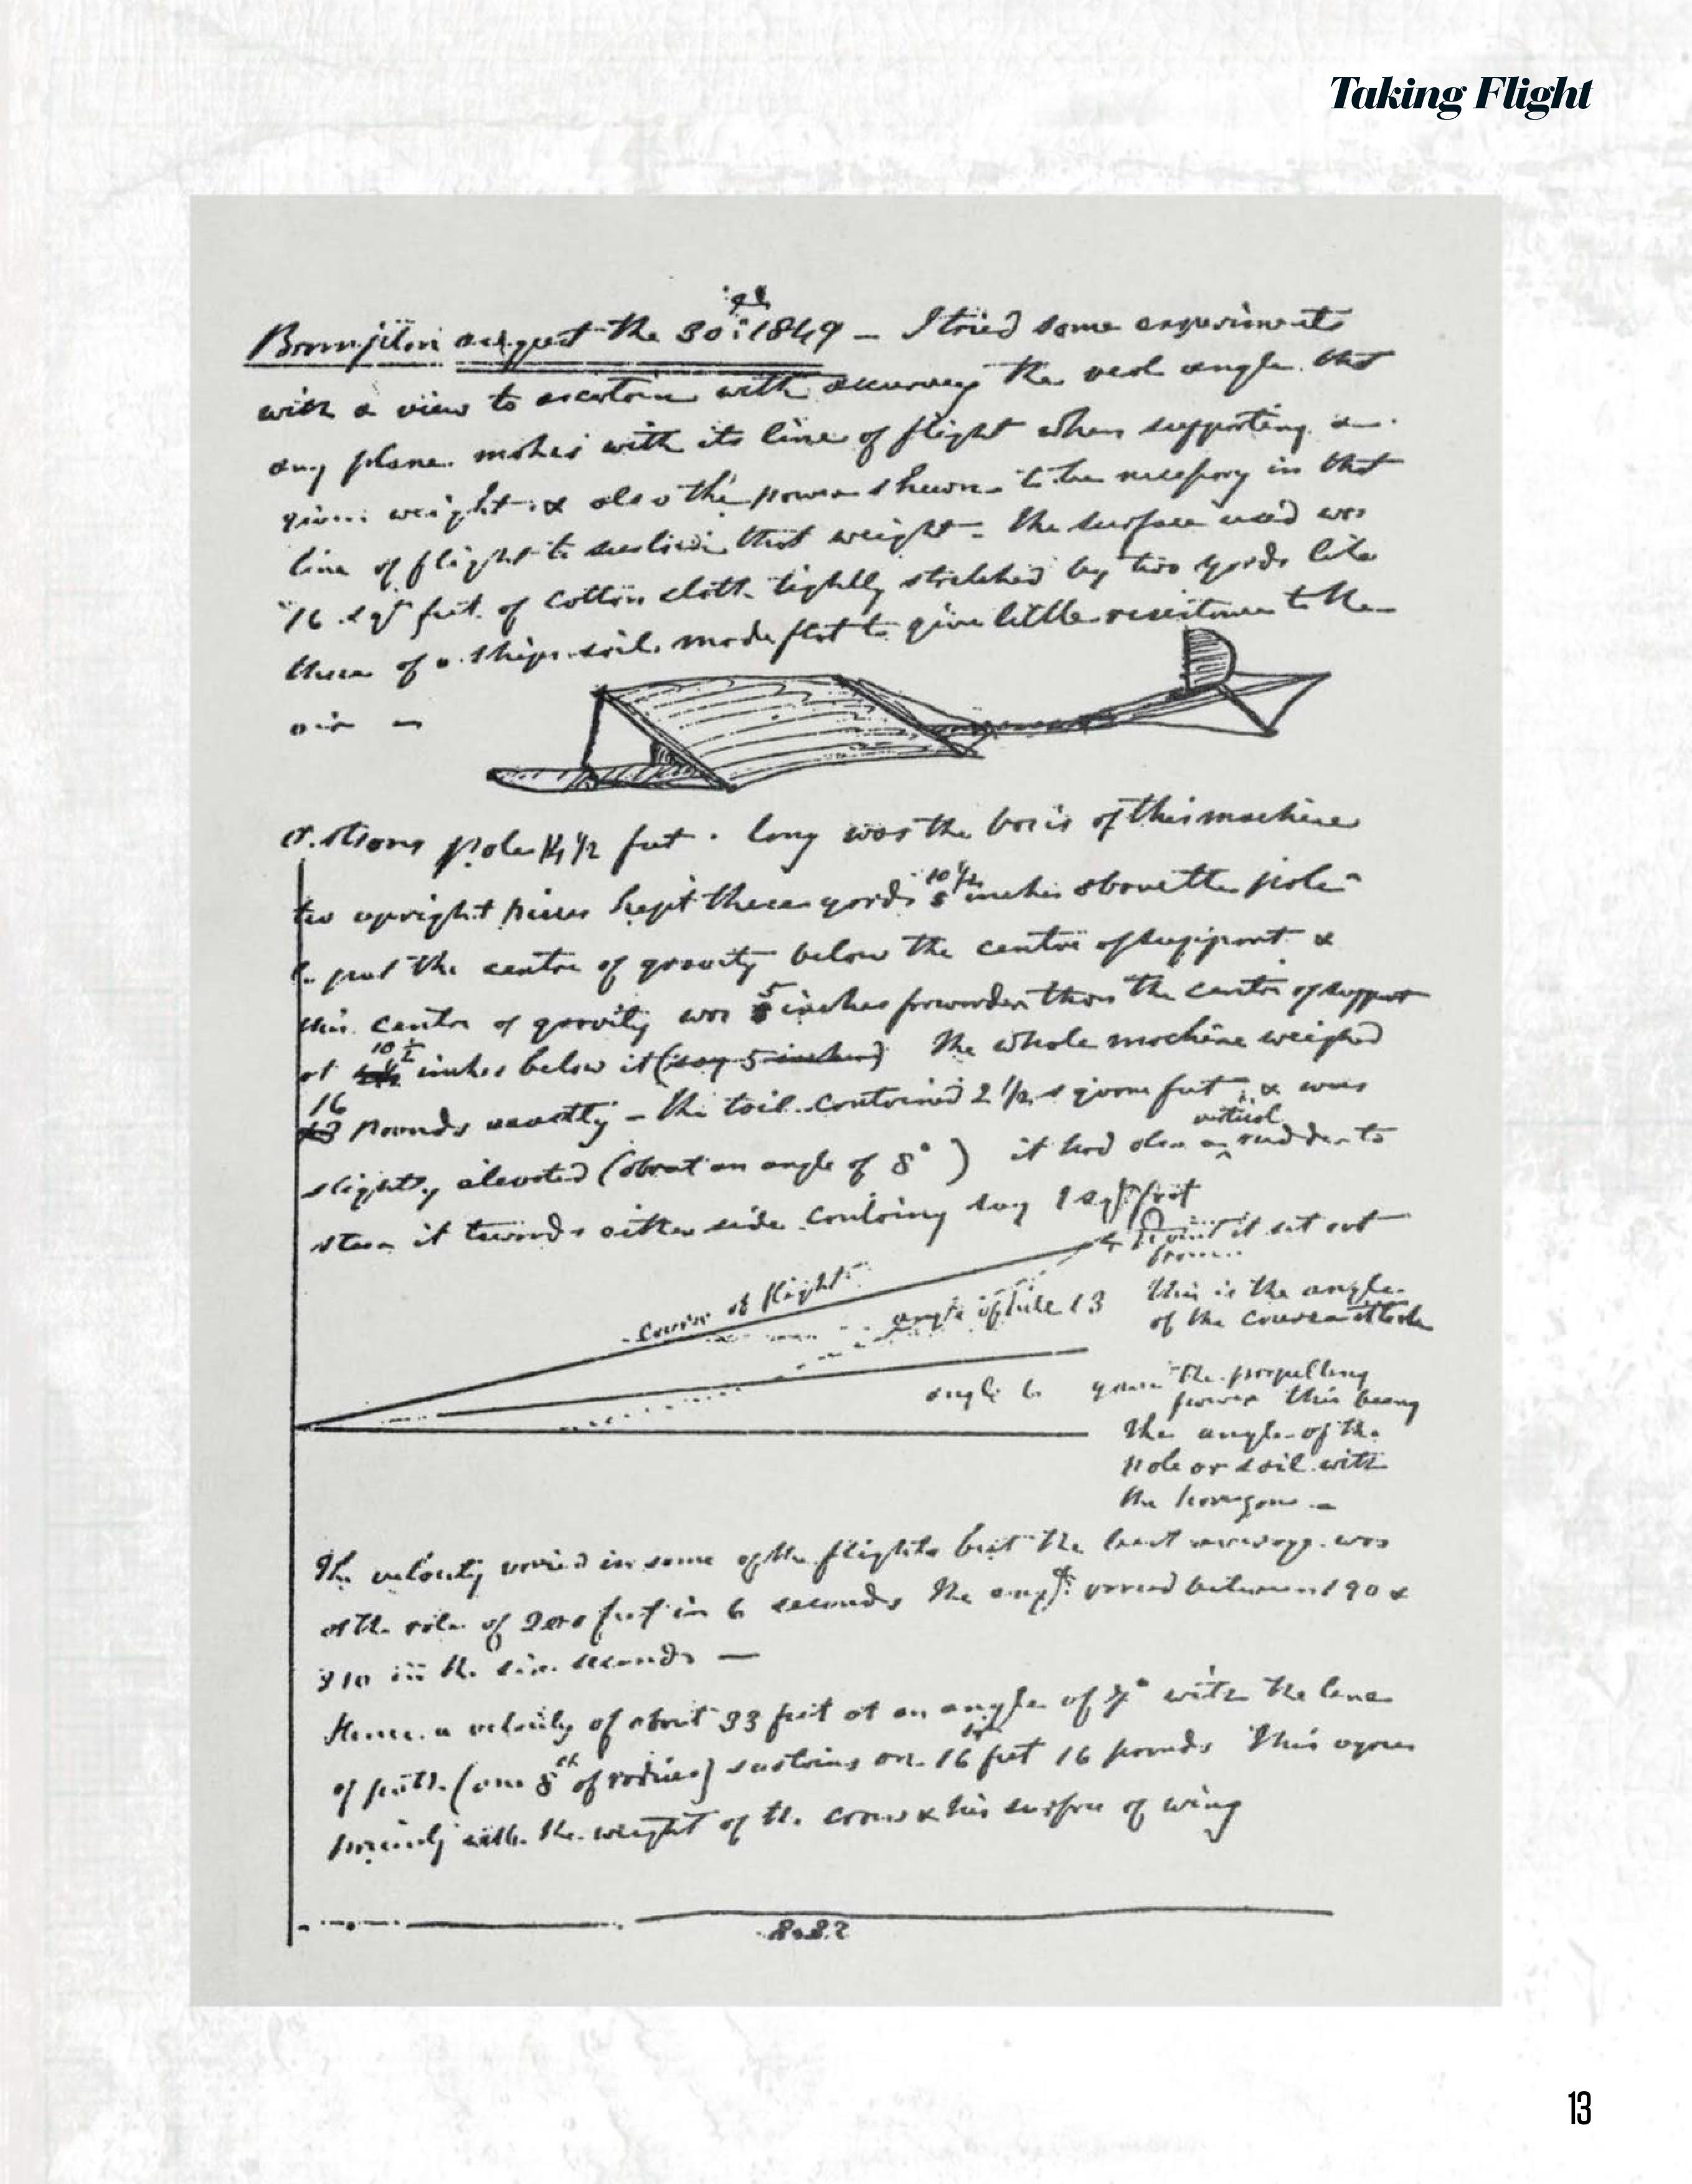 Taking Flight
Brompton august the 30: 1849 – I tried some experiments
with a view to ascertain with accuracy the real angle that
any plane makes with its line of flight when supporting a
given weight & also the power shewn to be necessary in that
line of flight to sustain that weight – The surface used was
16 sqr feet of cotton cloth tightly stretched by two yards like
those of a ships sail, made flat to give little resistance to the
air –
a strong pole 14 1/2 feet long was the basis of this machine
two upright pieces kept these yards 10 1/2 inches above the pole
to put the centre of gravity below the centre of support &
this centre of gravity was 5 inches forwarder than the centre of support
at 10 1/2 inches below it (say 5 inches) The whole machine weighed
16 pounds exactly – The tail contained 2 1/2 square feet, & was
slightly elevated (about an angle of 8°) it had also a vertical rudder to
steer it towards either side containing say 1 sqr foot
Point it set out
from
course of flight
angle of 13
this is the angle
of the course
angle 6
the propelling
power this being
the angle of the
pole or sail with
the
The velocity varied in some of the flights but the was
at the rate of feet in 6 seconds The varied between 190 &
210 in the six seconds –
Hence a velocity of about 33 feet at an angle of 7° with the line
of path (one 8th of radius) sustains on 16 feet 16 pounds This agrees
with the weight of the crow & his surface of wing
13